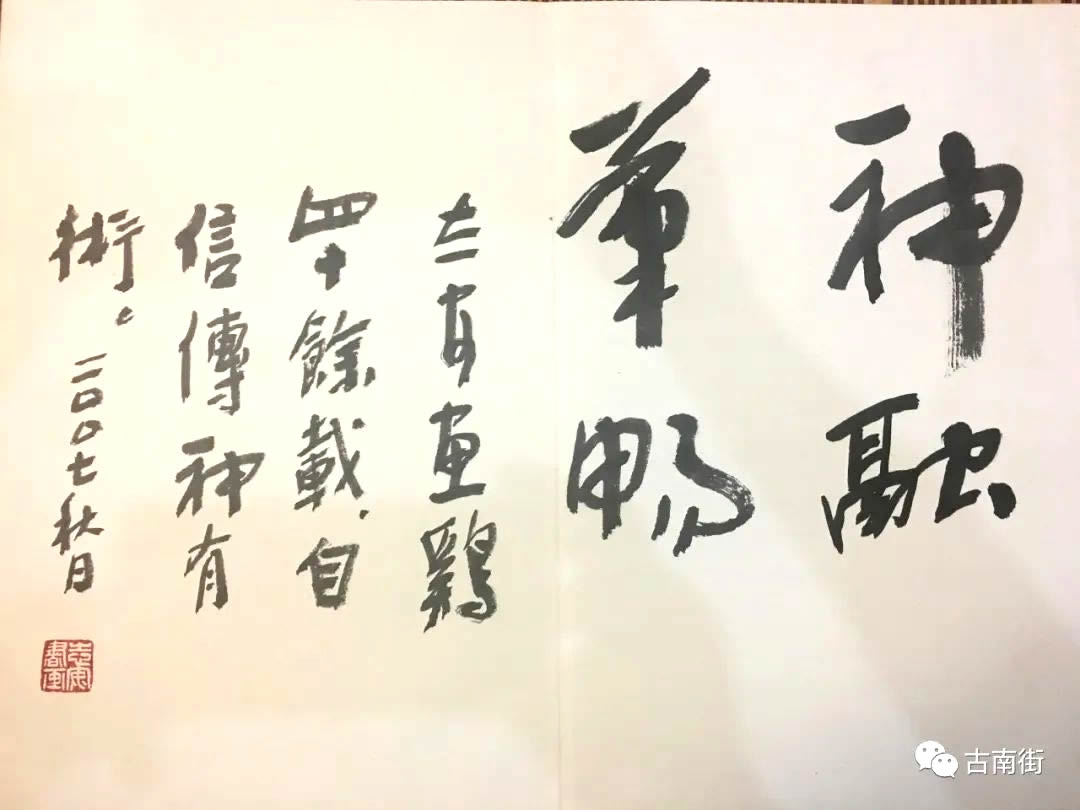 神融
筆暢
畫鷄
四十餘載、自
信傳神有
術。
二〇〇七秋日
古南街